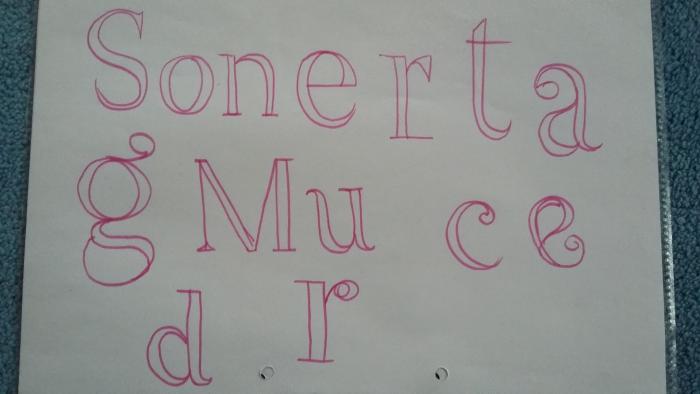 Sonerta
gMu ce
d r